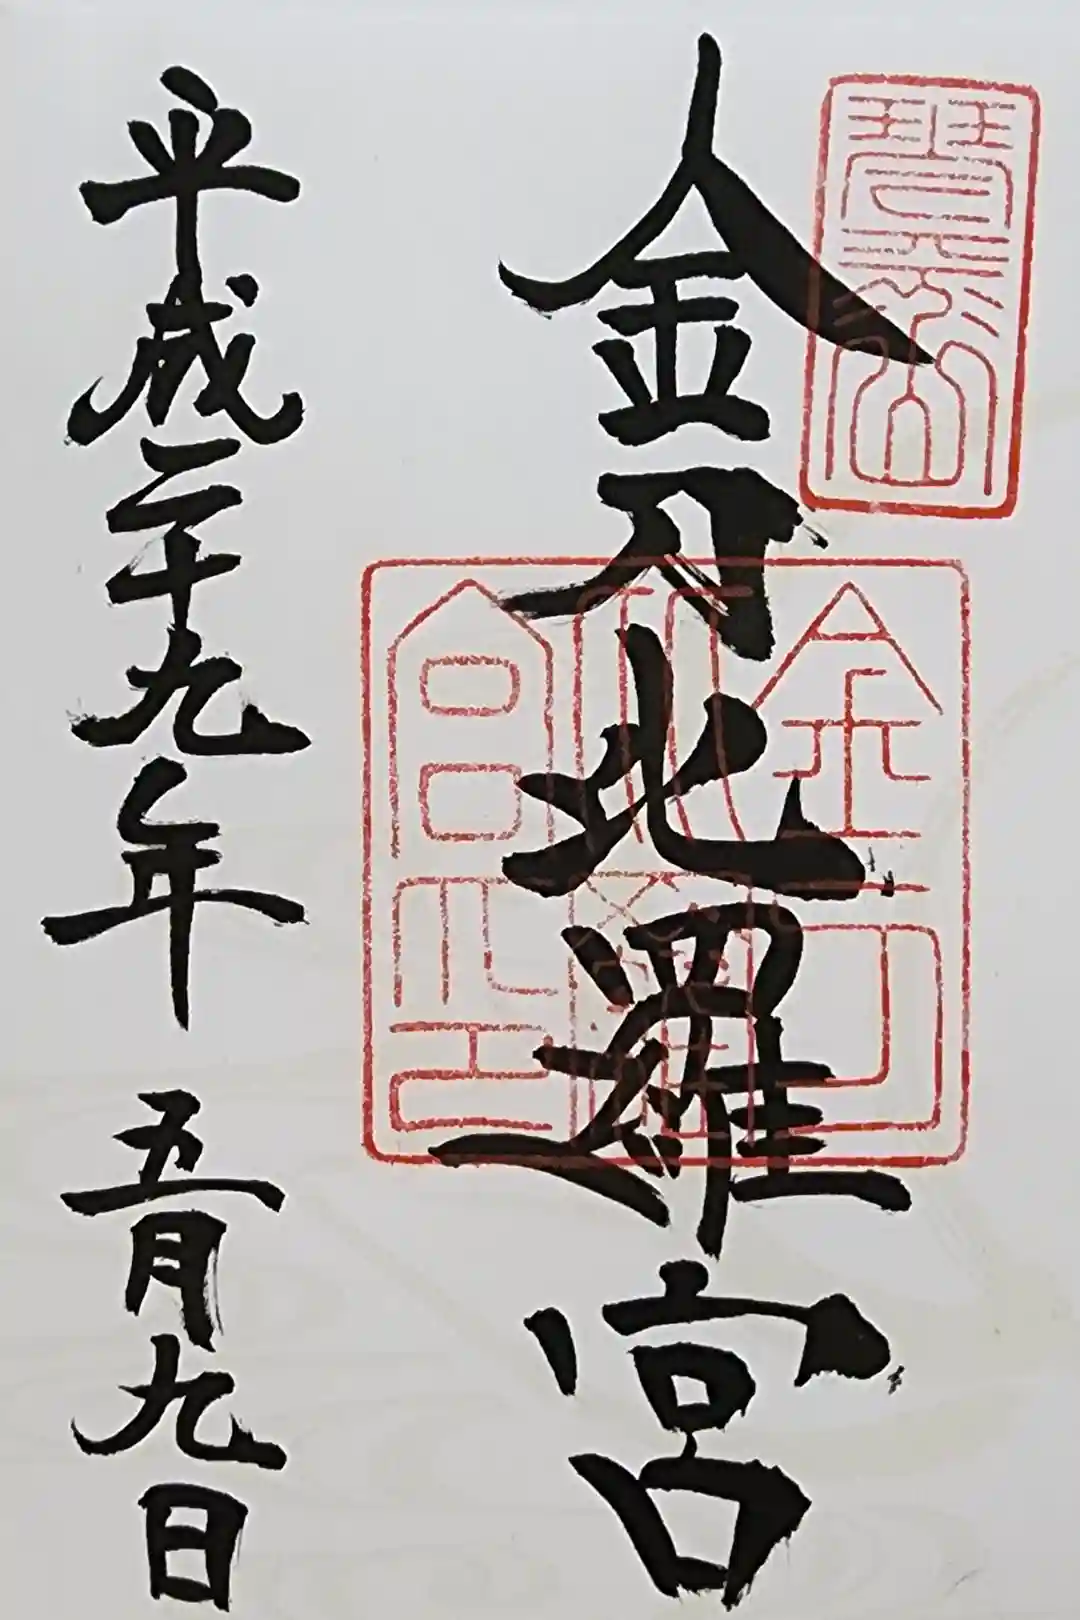 金刀比羅宮
平成二十九年 五月九日
琴平山
金刀比羅宮之玉